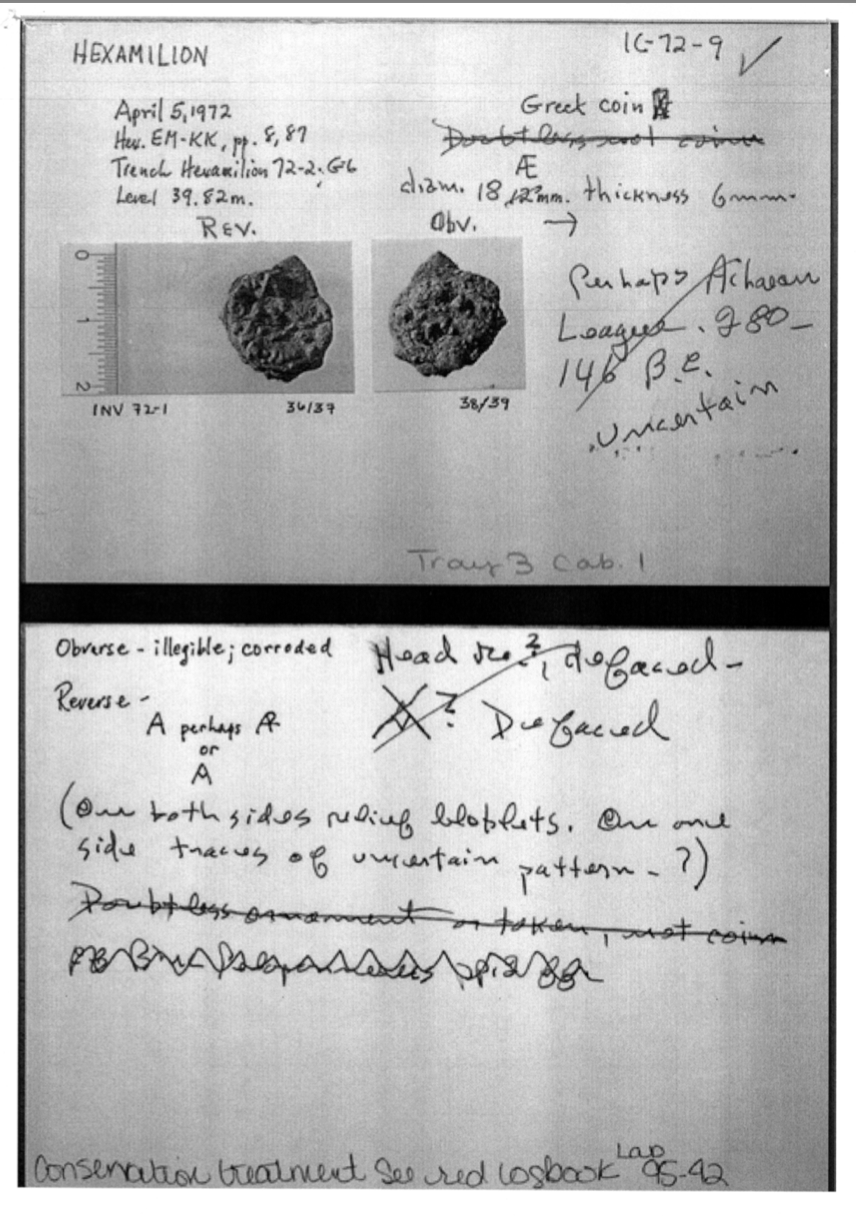 HEXAMILION
IC-72-9 ✓
April 5, 1972
Hex. EM-KK, pp. 8, 87
Trench Hexamilion 72-2: G-6
Level 39.82m.
Greek coin
Doubtless not coin
Æ
diam. 18 mm. thickness 6mm.
Rev.
Obv. →
0
1
2
INV 72-1
36/37
38/39
Perhaps Achaean
League. 280-
146 B.C.
Uncertain
Tray 3 Cab. 1
Obverse - illegible; corroded
Head ?, defaced-
Reverse -
? Defaced
A perhaps
or
A
(On both sides relief bloblets. On one
side traces of uncertain pattern - ?)
Doubtless ornament or token, not coin
Conservation treatment See red Logbook Lab 95-92